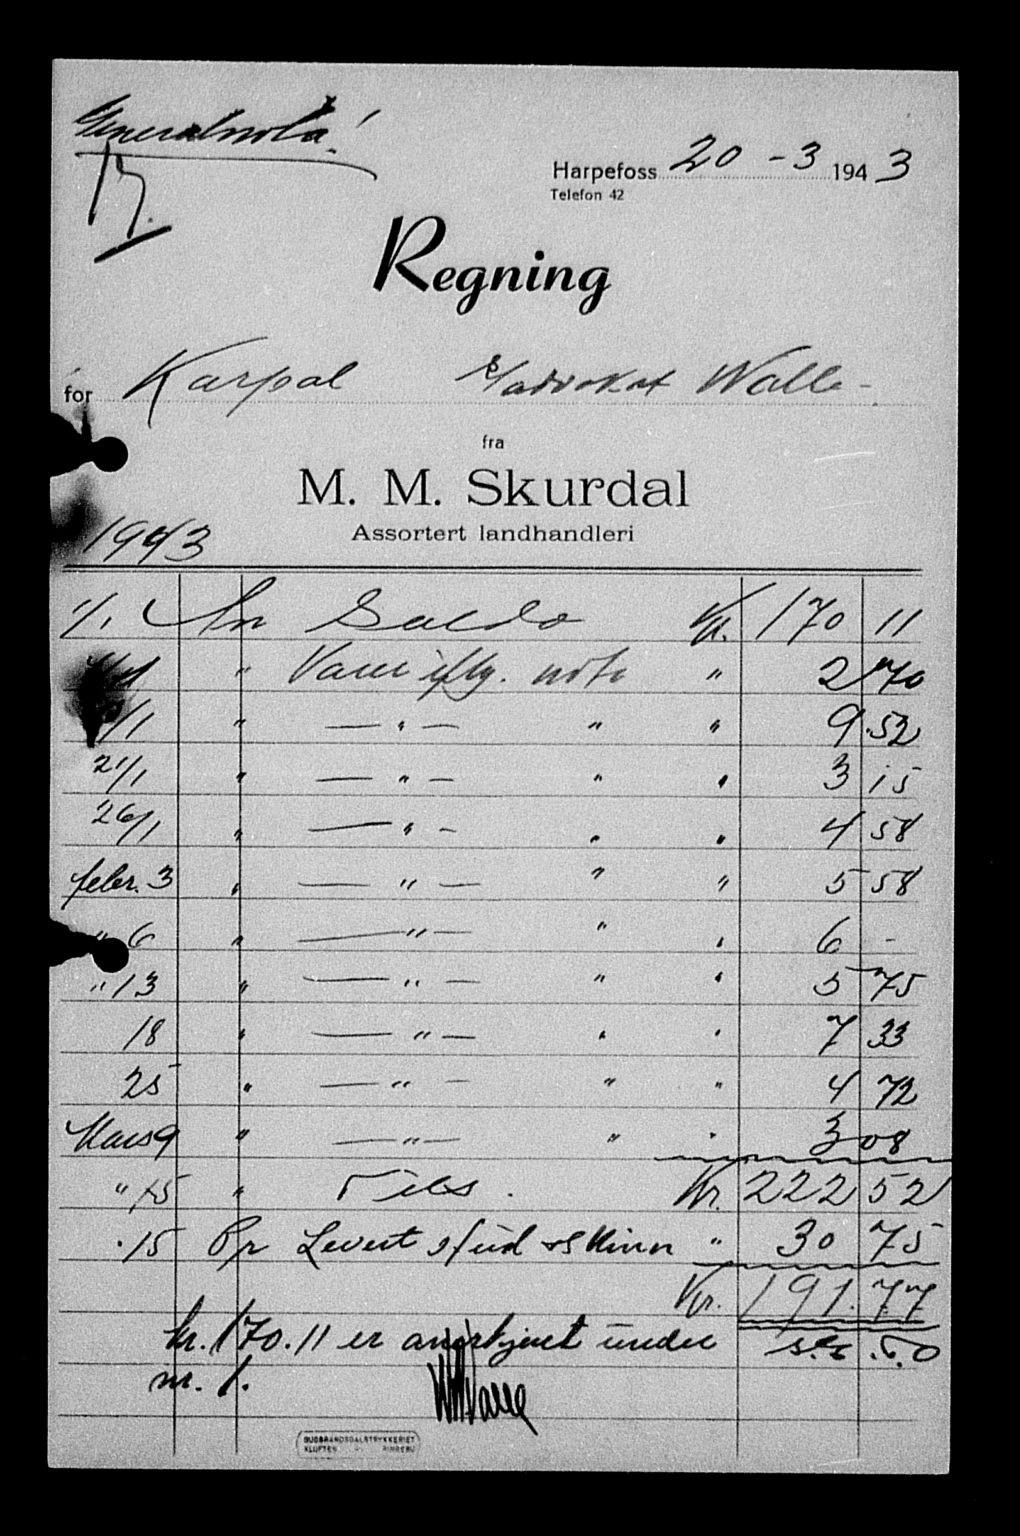 Generalnota!
Harpefoss 20 - 3 1943
Telefon 42
Regning
for Karpal Advokat Walle -
fra
M. M. Skurdal
Assortert landhandleri
1943
1/1 An Saldo Kr. 170 11
" Varer iflg. nota " 2 70
/1 " — " — " " 9 52
21/1 " — " — " " 3 15
26/1 " — " — " " 4 58
febr. 3 " — " — " " 5 58
" 6 " — " — " " 6 -
" 13 " — " — " " 5 75
18 " — " — " " 7 33
25 " — " — " " 4 72
Mars 9 " — " — " " 3 08
" 15 " Kr. 222 52
" 15 Pr Levert skinn " 30 75
Kr. 191.77
kr. 170.11 er anerkjent under
nr. 1.
WWalle
GUDBRANDSDALSTRYKKERIET
KLUFTEN - RINGEBU